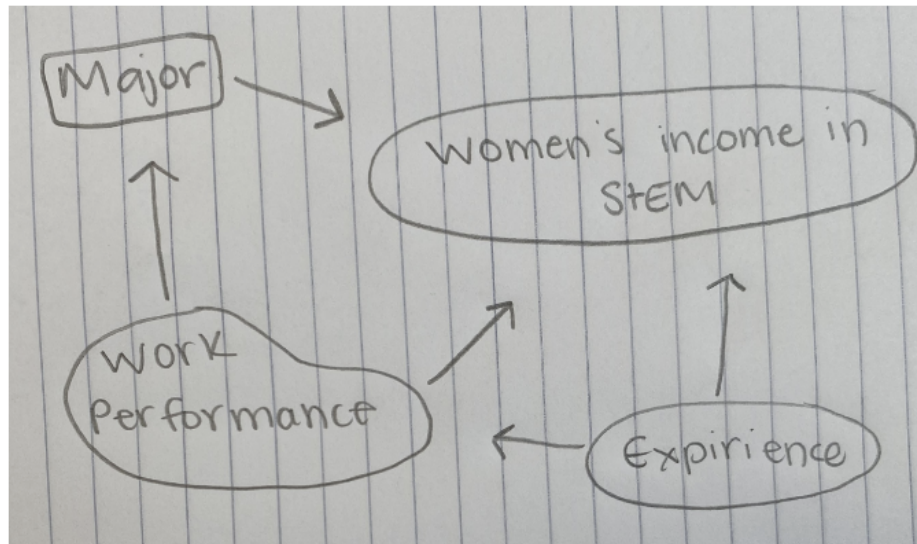 Major
Women's income in
STEM
Work
Performance
Expirience